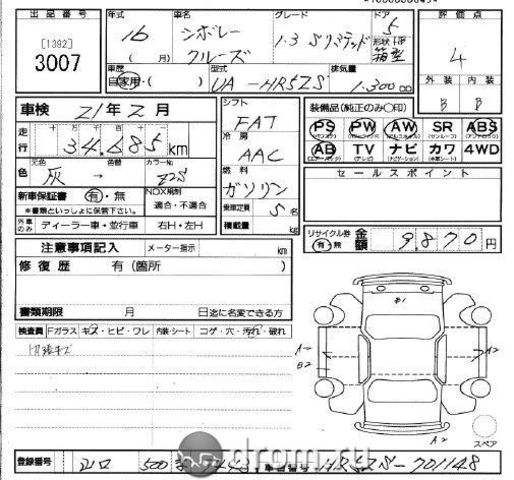 出品番号
[1392]
3007
年式
16
( 月)
車名
シボレー
クルーズ
グレード
1.3 Sリミテッド
ドア
5
形状 HB
箱型
評価点
4
外装 内装
B B
車歴
自家用・( )
型式
UA-HR52S
排気量
1.300 cc
車検 21年2月
走行 34,685 km
十万 万 千 百 十
元色 色替 カラーNo.
色 灰 → Z2S
新車保証書 有・無
*書類といっしょに保管下さい。
NOX規制
適合・不適合
外車のみ ディーラー車・並行車 右H・左H
シフト
FAT
冷房
AAC
燃料
ガソリン
乗車定員 5名
積載量 kg
装備品(純正のみ○印)
PS PW AW SR ABS
AB TV ナビ カワ 4WD
セールスポイント
リサイクル券 有・無
金額 9.870円
注意事項記入 メーター指示 km
修復歴 有(箇所 )
書類期限 月 日迄に名変できる方
検査員 Fガラス キズ・ヒビ・ワレ 内装・シート コゲ・穴・汚れ・破れ
B1
A2
B2
A2
A2
スペア
登録番号 山口 500
HR52S-701148
drom.ru